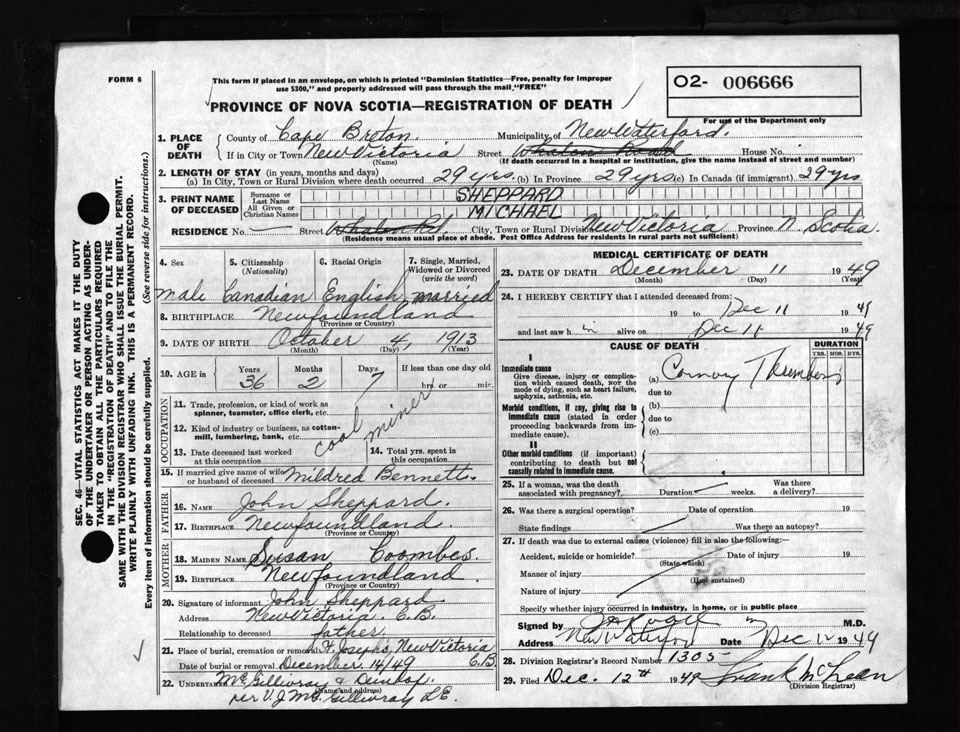 FORM 6
This form if placed in an envelope, on which is printed "Dominion Statistics—Free, penalty for improper
use $300," and properly addressed will pass through the mail "FREE"
O2- 006666
For use of the Department only
PROVINCE OF NOVA SCOTIA—REGISTRATION OF DEATH
1. PLACE OF DEATH
County of Cape Breton. Municipality of New Waterford.
If in City or Town New Victoria Street Whalen Road House No.
(Name) (If death occurred in a hospital or institution, give the name instead of street and number)
2. LENGTH OF STAY (in years, months and days)
(a) In City, Town or Rural Division where death occurred 29 yrs. (b) In Province 29 yrs (c) In Canada (if immigrant) 29 yrs
3. PRINT NAME OF DECEASED
Surname or Last Name SHEPPARD
All Given or Christian Names MICHAEL
RESIDENCE No. — Street Whalen Rd. City, Town or Rural Division New Victoria Province N. Scotia.
(Residence means usual place of abode. Post Office Address for residents in rural parts not sufficient)
4. Sex 5. Citizenship (Nationality) 6. Racial Origin 7. Single, Married, Widowed or Divorced (write the word)
male Canadian English married
8. BIRTHPLACE Newfoundland
(Province or Country)
9. DATE OF BIRTH October 4, 1913
(Month) (Day) (Year)
10. AGE in Years Months Days If less than one day old
36 2 7 hrs. or min.
OCCUPATION
11. Trade, profession, or kind of work as
spinner, teamster, office clerk, etc.
12. Kind of industry or business, as cotton-
mill, lumbering, bank, etc.
coal miner
13. Date deceased last worked
at this occupation
14. Total yrs. spent in
this occupation
15. If married give name of wife
or husband of deceased Mildred Bennett.
FATHER
16. NAME John Sheppard.
17. BIRTHPLACE Newfoundland.
(Province or Country)
MOTHER
18. MAIDEN NAME Susan Coombes.
19. BIRTHPLACE Newfoundland.
(Province or Country)
20. Signature of informant John Sheppard
Address New Victoria, C.B.
Relationship to deceased father.
21. Place of burial, cremation or removal St. Josephs, New Victoria C.B.
Date of burial or removal December 14/49
22. UNDERTAKER McGillivray & Dunlop.
(Name and address)
per V.J. McGillivray L.E.
MEDICAL CERTIFICATE OF DEATH
23. DATE OF DEATH December 11 1949
(Month) (Day) (Year)
24. I HEREBY CERTIFY that I attended deceased from:
19 to Dec 11 1949
and last saw h im alive on Dec 11 1949
CAUSE OF DEATH
DURATION
YRS. MOS. DYS.
I
Immediate cause
Give disease, injury or complica-
tion which caused death, NOT the
mode of dying, such as heart failure,
asphyxia, asthenia, etc.
(a)
due to
Morbid conditions, if any, giving rise to
immediate cause (stated in order
proceeding backwards from im-
mediate cause).
(b)
due to
(c)
II
Other morbid conditions (if important)
contributing to death but not
causally related to immediate cause.
25. If a woman, was the death
associated with pregnancy? Duration weeks. Was there
a delivery?
26. Was there a surgical operation? Date of operation 19
State findings Was there an autopsy?
27. If death was due to external causes (violence) fill in also the following:
Accident, suicide or homicide? Date of injury 19
(State which)
Manner of injury
(How sustained)
Nature of injury
Specify whether injury occurred in industry, in home, or in public place
Signed by M.D.
Address New Waterford Date Dec 12 1949
28. Division Registrar's Record Number 1305
29. Filed Dec. 12th 1949 Frank McLean
(Division Registrar)
SEC. 46—VITAL STATISTICS ACT MAKES IT THE DUTY
OF THE UNDERTAKER OR PERSON ACTING AS UNDER-
TAKER TO OBTAIN ALL THE PARTICULARS REQUIRED
IN THE "REGISTRATION OF DEATH" AND TO FILE THE
SAME WITH THE DIVISION REGISTRAR WHO SHALL ISSUE THE BURIAL PERMIT.
WRITE PLAINLY WITH UNFADING INK. THIS IS A PERMANENT RECORD.
Every item of information should be carefully supplied. (See reverse side for instructions.)